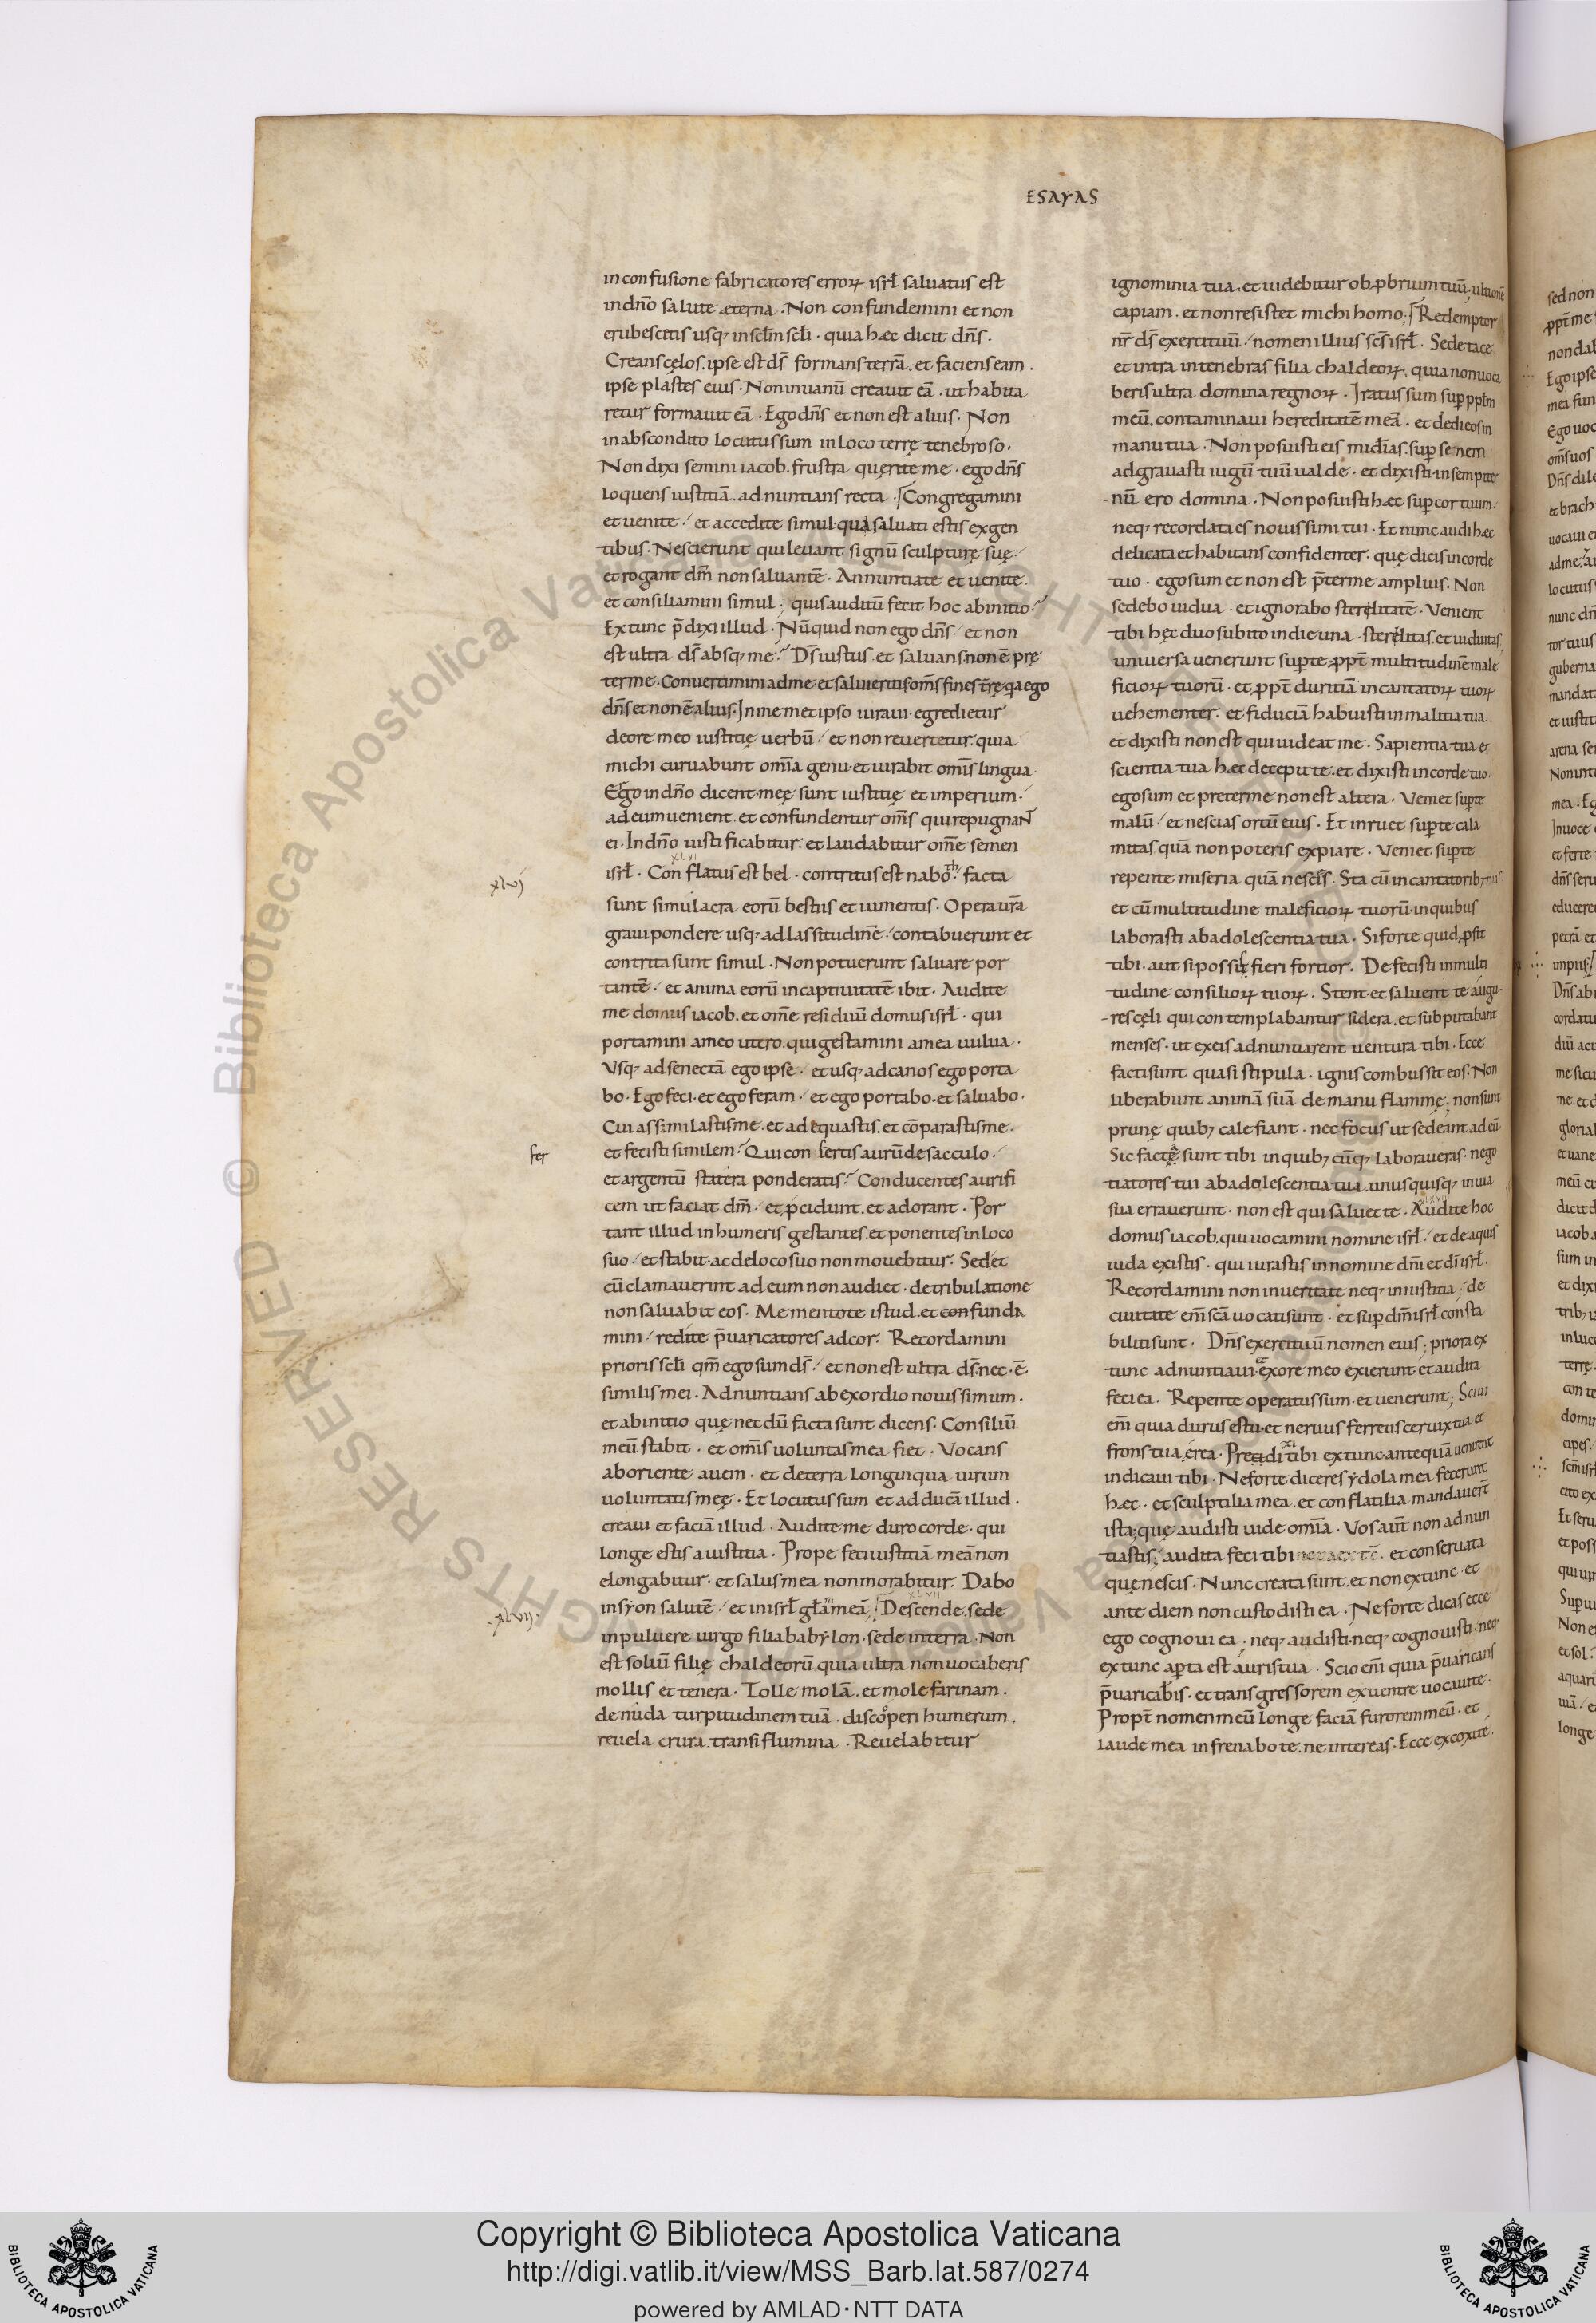 ESAYAS
in confusione fabricatores erroꝝ isrł saluatus est
in dn̄o salute æterna . Non confundemini et non
erubescetis usq; in scłm scłi . quia hæc dicit dn̄s .
Creans cęlos . ipse est ds̄ formans terrā . et faciens eam .
ipse plastes eius . Non in uanū creauit eā . ut habita
retur formauit eā . Ego dn̄s et non est alius . Non
in abscondito locutus sum in loco terrę tenebroso .
Non dixi semini iacob . frustra quęrite me . ego dn̄s
loquens iustitiā . adnuntians recta . Congregamini
et uenite / et accedite simul . quia saluati estis ex gen
tibus . Nescierunt qui leuant signū sculpturę suę /
et rogant dm̄ non saluantē . Annuntiate et uenite .
et consiliamini simul ; quis auditū fecit hoc ab initio ?
Ex tunc p̄dixi illud . Nūquid non ego dn̄s / et non
est ultra ds̄ absq; me ? Ds̄ iustus . et saluans non ē prę
ter me . Conuertimini ad me et salui eritis om̄s fines t̄rę qa ego
dn̄s et non ē alius . In memet ipso iuraui . egredietur
de ore meo iustitię uerbū / et non reuertetur quia
michi curuabunt om̄ia genu . et iurabit om̄is lingua .
Ergo in dn̄o dicent . meę sunt iustitię et imperium /
ad eum uenient . et confundentur om̄s qui repugnant
ei . In dn̄o iustificabitur . et laudabitur om̄e semen
xlvi
isrł . Conflatus est bel . contritus est nabo th . facta
xlvj
sunt simulacra eorū bestiis et iumentis . Opera urā
graui pondere usq; ad lassitudinē / contabuerunt et
contrita sunt simul . Non potuerunt saluare por
tantē / et anima eorū in captiuitatē ibit . Audite
me domus iacob . et om̄e residuū domus isrł . qui
portamini a meo utero . qui gestamini a mea uulua .
Vsq; ad senectā ego ipse . et usq; ad canos ego porta
bo . Ego feci . et ego feram / et ego portabo . et saluabo .
Cui assimilastis me . et adequastis . et cōparastis me .
et fecistis similem ? Qui conſertis aurū de sacculo /
fer
et argentū statera ponderatis ? Conducentes aurifi
cem ut faciat dm̄ / et ꝓcidunt . et adorant . Por
tant illud in humeris gestantes . et ponentes in loco
suo / et stabit . ac de loco suo non mouebitur . Sed et
cū clamauerint ad eum non audiet . de tribulatione
non saluabit eos . Mementote istud . et confunda
mini / redite p̄uaricatores ad cor . Recordamini
prioris scłi qm̄ ego sum ds̄ / et non est ultra ds̄ . nec . ē .
similis mei . Adnuntians ab exordio nouissimum .
et ab initio quę nec dū facta sunt dicens . Consiliū
meū stabit . et om̄is uoluntas mea fiet . Vocans
ab oriente auem . et de terra longinqua uirum
uoluntatis meę . Et locutus sum et adducā illud .
creaui et faciā illud . Audite me duro corde . qui
longe estis a iustitia . Prope feci iustitiā meā non
elongabitur . et salus mea non morabitur . Dabo
xlvii
in syon salutē / et in isrł głam meā . Descende . sede
.xlvij.
in puluere uirgo filia babylon . sede in terra . Non
est soliū filię chaldeorū quia ultra non uocaberis
mollis et tenera . Tolle molā . et mole farinam .
denuda turpitudinem tuā . discooperi humerum .
reuela crura . transi flumina . Reuelabitur
ignominia tua . et uidebitur obꝓbrium tuū . ultionē
capiam . et non resistet michi homo ; Redemptor
nr̄ ds̄ exercituū / nomen illius scs̄ isrł . Sede tace .
et intra in tenebras filia chaldeoꝝ . quia non uoca
beris ultra domina regnoꝝ . Iratus sum suꝑ ppłm
meū . contaminaui hereditatē meā . et dedi eos in
manu tua . Non posuisti eis mīdias . suꝑ senem
adgrauasti iugū tuū ualde . et dixisti . in sempiter
nū ero domina . Non posuisti hæc suꝑ cor tuum .
neq; recordata es nouissimi tui . Et nunc audi hæc
delicata et habitans confidenter . quę dicis in corde
tuo . ego sum et non est p̄ter me amplius . Non
sedebo uidua . et ignorabo sterelitatē . Venient
tibi hęc duo subito in die una . sterelitas . et uiduitas .
uniuersa uenerunt suꝑ te ꝓpt̄ multitudinē male
ficioꝝ tuorū . et ꝓpt̄ duritiā incantatoꝝ tuoꝝ
uehementer . et fiduciā habuisti in malitia tua .
et dixisti non est qui uideat me . Sapientia tua et
scientia tua hæc decepit te . et dixisti in corde tuo .
ego sum et preter me non est altera . Veniet suꝑ te
malū / et nescias ortū eius . Et inruet suꝑ te cala
mitas quā non poteris expiare . Veniet suꝑ te
repente miseria quā nescis . Sta cū incantatorib; tuis .
et cū multitudine maleficioꝝ tuorū . in quibus
laborasti ab adolescentia tua . Si forte quid ꝓsit
tibi . aut si possis fieri fortior . Defecisti in multi
tudine consilioꝝ tuoꝝ . Stent . et saluent te augu
res cęli qui contemplabantur sidera . et subputabant
menses . ut ex eis adnuntiarent uentura tibi . Ecce
facti sunt quasi stipula . ignis combussit eos . Non
liberabunt animā suā de manu flammę . non sunt
prunę quib; calefiant . nec focus ut sedeant ad eū .
Sic factę sunt tibi in quib; cūq; laboraueras . nego
tiatores tui ab adolescentia tua . unusquisq; in uia
xlviii
sua errauerunt . non est qui saluet te . Audite hoc
domus iacob . qui uocamini nomine isrł / et de aquis
iuda existis . qui iurastis in nomine dn̄i et dī isrł .
Recordamini non in ueritate neq; in iustitia / de
ciuitate em̄ scā uocati sunt . et suꝑ dm̄ isrł consta
biliti sunt . Dn̄s exercituū nomen eius ; priora ex
tunc adnuntiaui . et ex ore meo exierunt et audita
feci ea . Repente operatus sum . et uenerunt ; Sciui
em̄ quia durus es tu . et neruus ferreus ceruix tua et
frons tua ęrea . Predixi tibi ex tunc antequā uenirent
indicaui tibi . Ne forte diceres ydola mea fecerunt
hæc . et sculptilia mea . et conflatilia mandauert̄
ista ; quę audisti uide om̄ia . Vos aut̄ non adnun
tiastis ; audita feci tibi noua ex tc̄ . et conseruata
quę nescis . Nunc creata sunt . et non ex tunc . et
ante diem non custodisti ea . Ne forte dicas ecce
ego cognoui ea . neq; audisti . neq; cognouisti . neq;
ex tunc aꝑta est auris tua . Scio em̄ quia p̄uaricans
p̄uaricabis . et transgressorem ex uentre uocaui te .
Propt̄ nomen meū longe faciā furorem meū . et
laude mea infrenabo te . ne intereas . Ecce excoxi te .
Copyright © Biblioteca Apostolica Vaticana
http://digi.vatlib.it/view/MSS_Barb.lat.587/0274
powered by AMLAD · NTT DATA
BIBLIOTECA APOSTOLICA VATICANA
BIBLIOTECA APOSTOLICA VATICANA